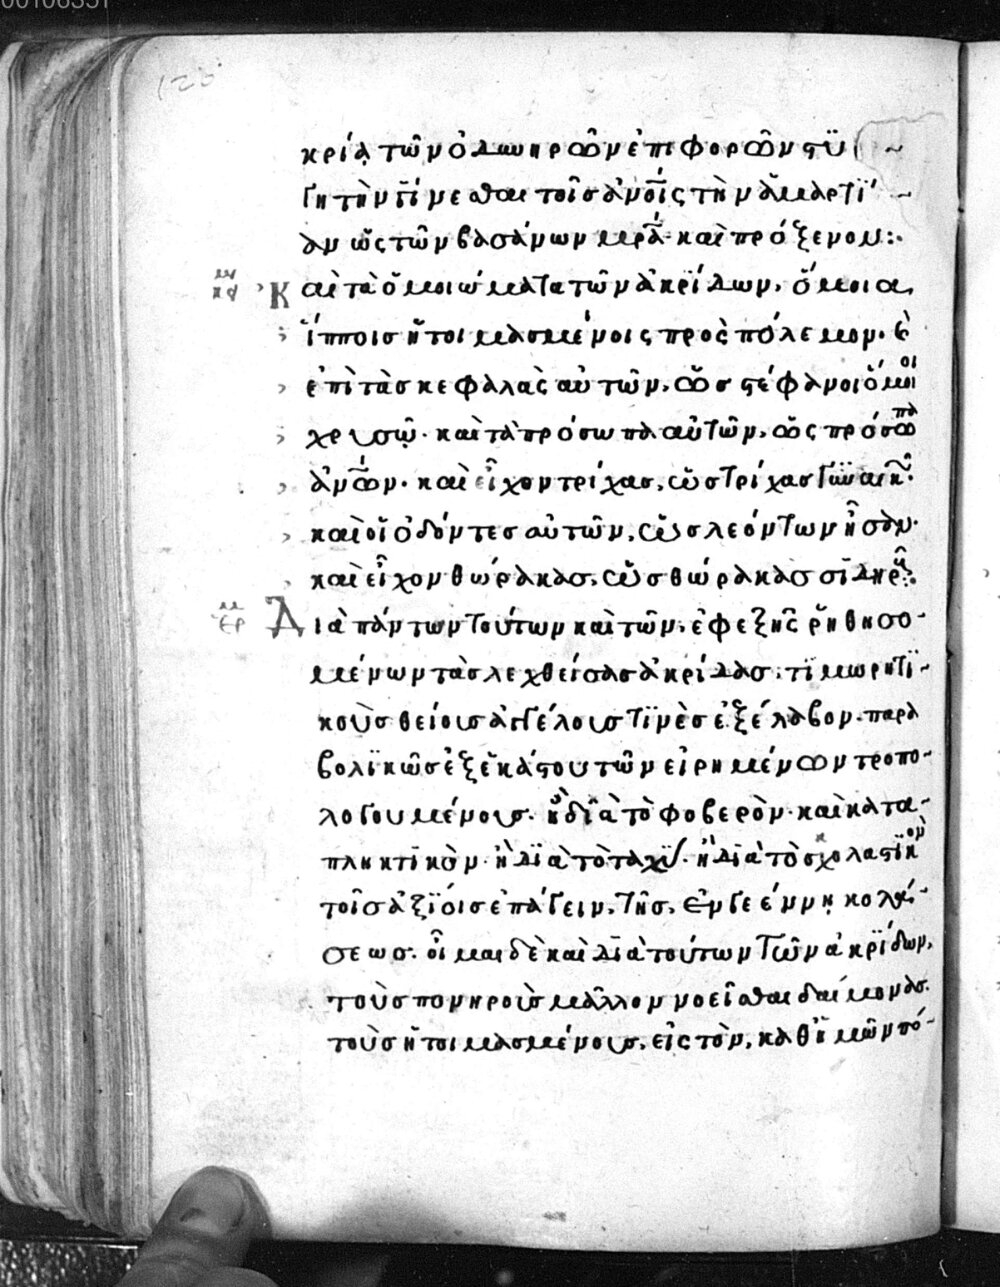 κρία τῶν ὀδωνηρῶν ἐπιφορῶν στυ
γητὴν τίμεσθαι τοῖς ἀνοις τὴν ἁμαρτϊ
αν ὡς τῶν βασάνων μρα. καὶ πρόξενον:.
Καὶ τὰ ὁμοιώματα τῶν ἀκρΐδων, ὅμοια
ἵπποις ἡτοιμασμένοις πρὸς πόλεμον. καὶ
ἐπὶ τὰς κεφαλὰς αὐτῶν, ὡς στέφανοι ὅμοιοι
χρυσῷ. καὶ τὰ πρόσωπα αὐτῶν, ὡς πρόσωπα
ἀνων. καὶ εἶχον τρίχας, ὡς τρίχας γυναικῶν.
καὶ οἱ ὀδόντες αὐτῶν, ὡς λεόντων ἦσαν.
καὶ εἶχον θώρακας, ὡς θώρακας σιδηροῦς:.
Διὰ πάντων τούτων καὶ τῶν, ἐφεξῆς ῥηθησο-
μένων τὰς λεχθείσας ἀκρίδας. τϊμωρητϊ-
κοὺς θείους ἀγγέλους τϊνὲς ἐξέλαβον. παρα
βολϊκῶς ἐξ ἑκάστου τῶν εἰρημένων τροπο-
λογουμένους. ἢ διὰ τὸ φοβερὸν. καὶ κατα-
πληκτϊκὸν. ἢ διὰ τὸ ταχὺ. ἢ διὰ τὸ σχολαστϊκὸν
τοῖς ἀξϊοις ἐπάγειν, τῆς, ἐν γεέννῃ κολά-
σεως. οἶμαι δὲ καὶ διὰ τούτων τῶν ἀκρΐδων,
τοὺς πονηροὺς μᾶλλον νοεῖσθαι δαίμονας.
τοὺς ἡτοιμασμένους, εἰς τὸν, καθ' ἡμῶν πό-